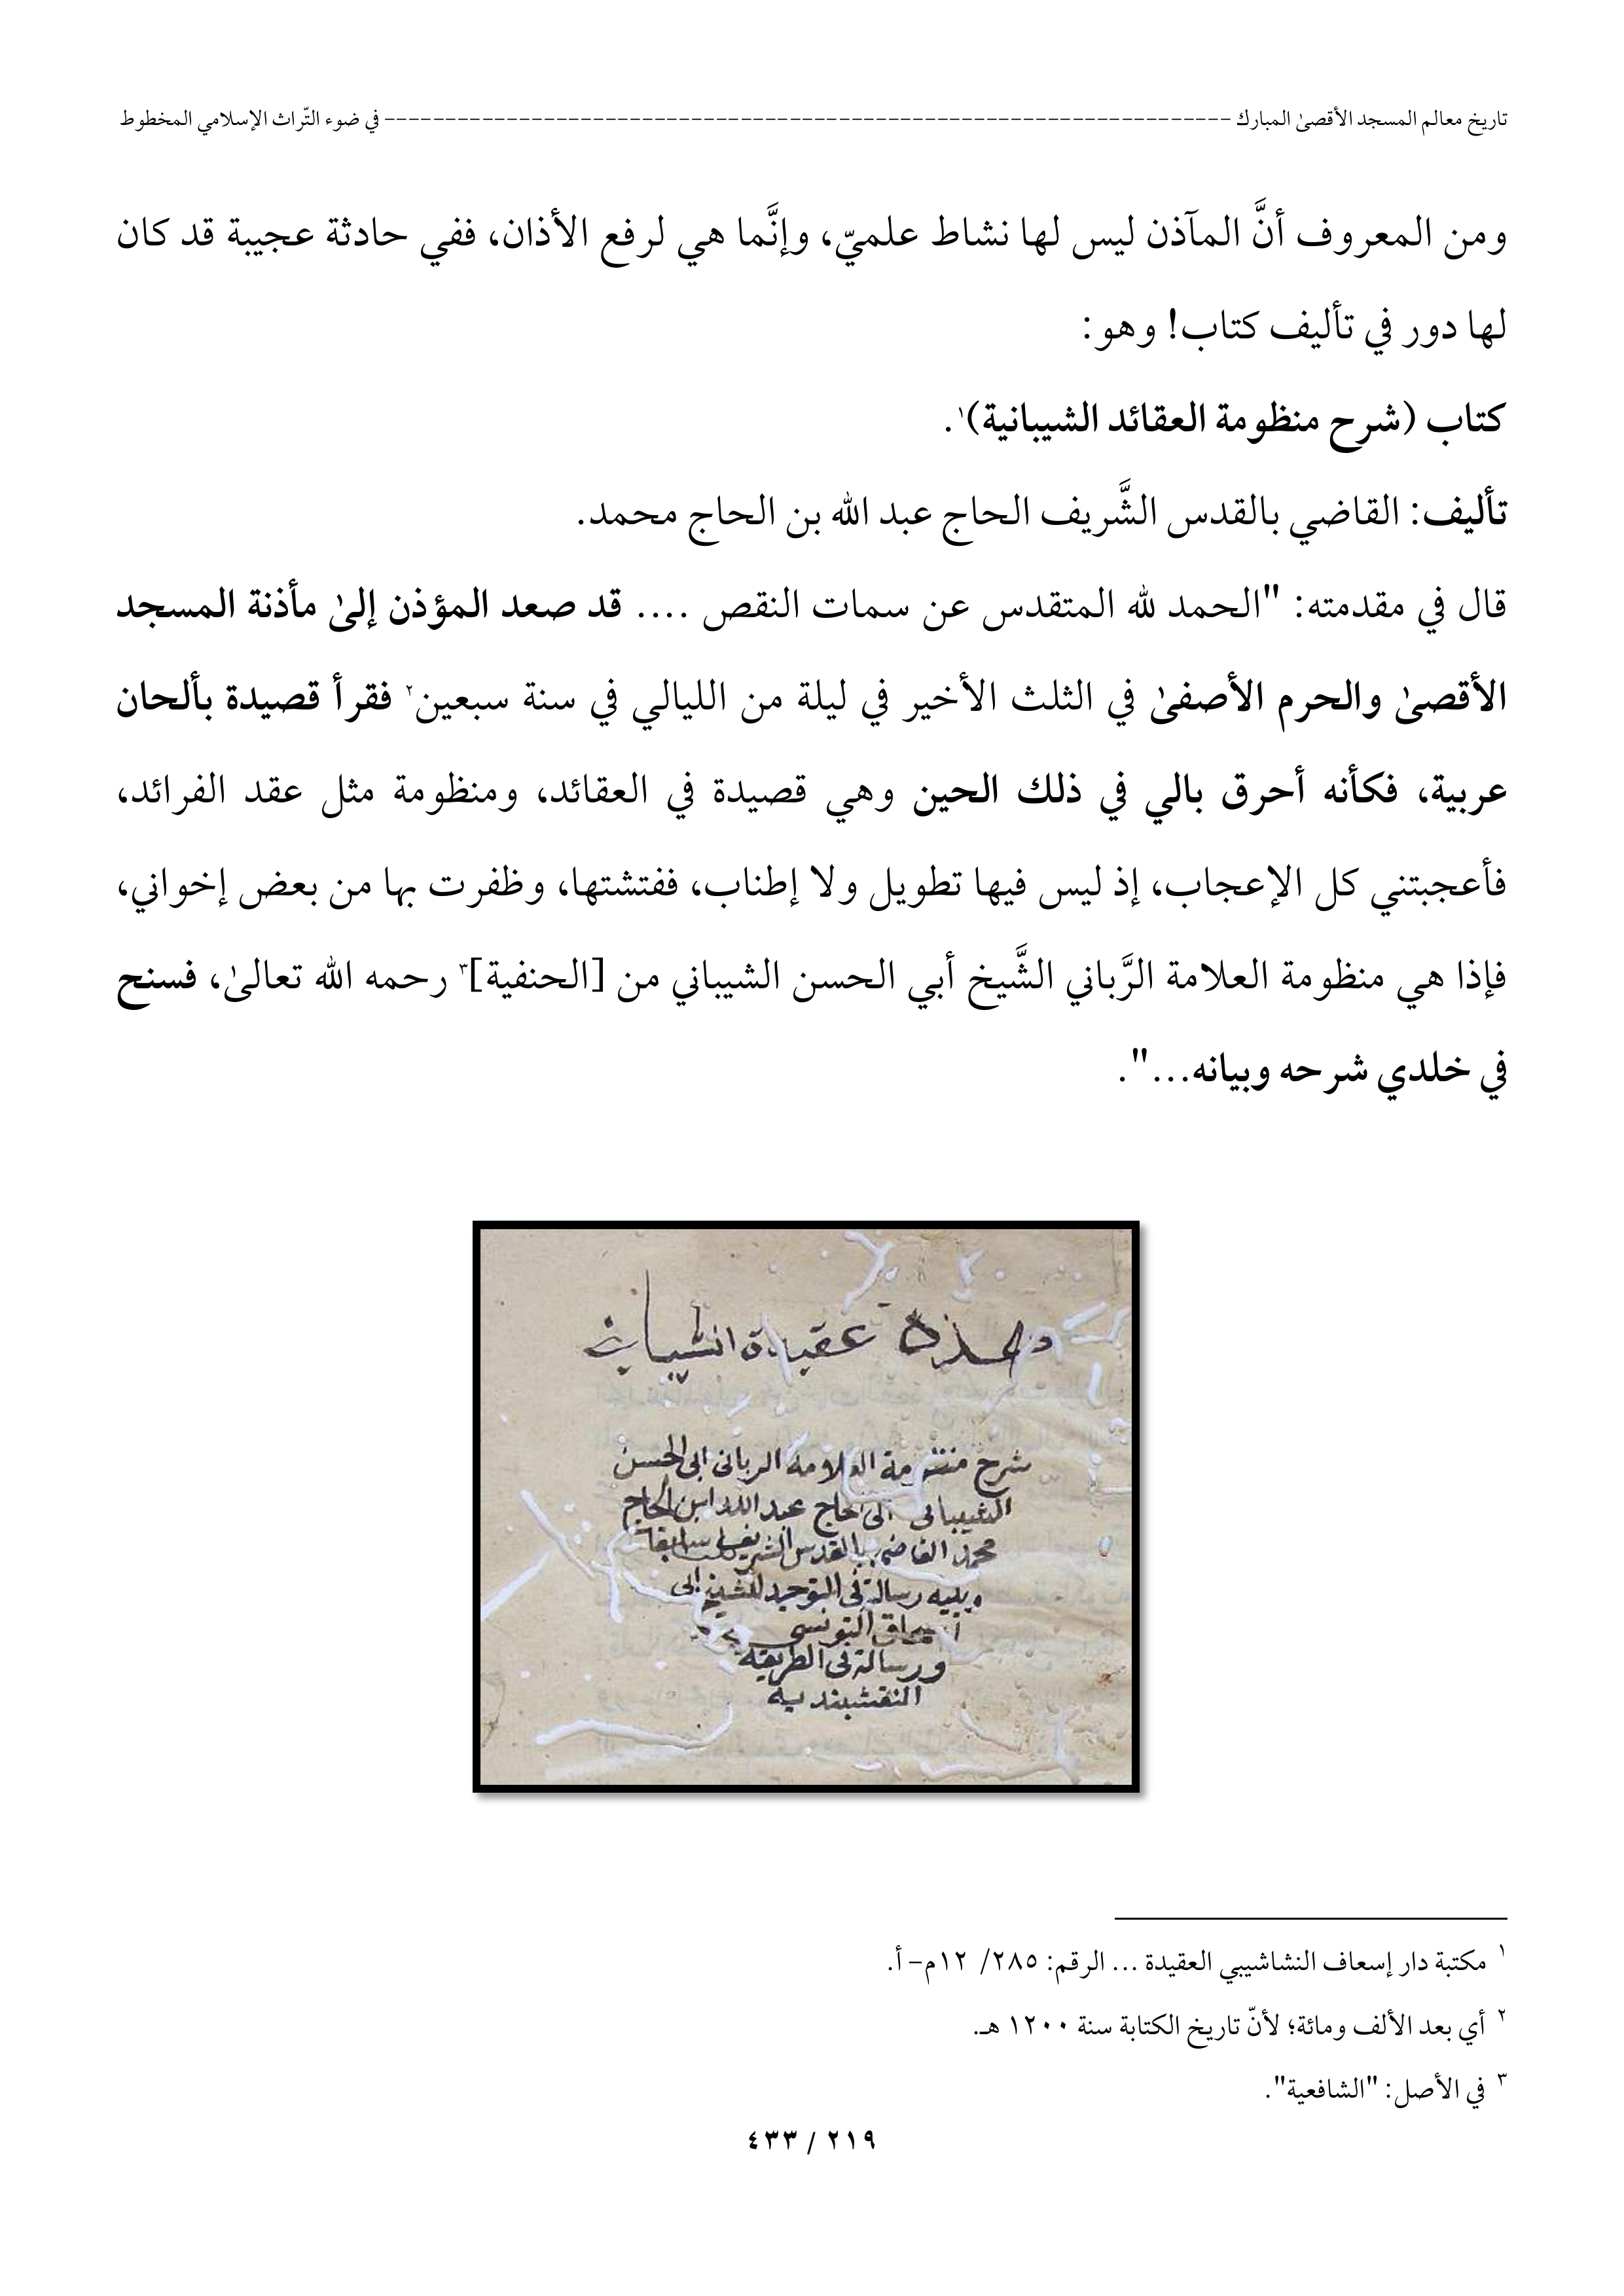 تاريخ معالم المسجد الأقصىٰ المبارك ------------------------------------------------------------------ في ضوء التّراث الإسلامي المخطوط
ومن المعروف أنَّ المآذن ليس لها نشاط علميّ، وإنَّما هي لرفع الأذان، ففي حادثة عجيبة قد كان
لها دور في تأليف كتاب! وهو:
كتاب (شرح منظومة العقائد الشيبانية)١.
تأليف: القاضي بالقدس الشَّريف الحاج عبد الله بن الحاج محمد.
قال في مقدمته: "الحمد لله المتقدس عن سمات النقص .... قد صعد المؤذن إلىٰ مأذنة المسجد
الأقصىٰ والحرم الأصفىٰ في الثلث الأخير في ليلة من الليالي في سنة سبعين٢ فقرأ قصيدة بألحان
عربية، فكأنه أحرق بالي في ذلك الحين وهي قصيدة في العقائد، ومنظومة مثل عقد الفرائد،
فأعجبتني كل الإعجاب، إذ ليس فيها تطويل ولا إطناب، ففتشتها، وظفرت بها من بعض إخواني،
فإذا هي منظومة العلامة الرَّباني الشَّيخ أبي الحسن الشيباني من [الحنفية]٣ رحمه الله تعالىٰ، فسنح
في خلدي شرحه وبيانه...".
هذه عقيدة الشيباني
شرح منظومة العلامة الربانى ابى الحسن
الشيبانى الى الحاج عبد الله ابن الحاج
محمد القاضى بالقدس الشريف سابقا
ويليه رسالة فى التوحيد للشيخ ابى
اسحاق التونسي
ورسالة فى الطريقة
النقشبندية
١ مكتبة دار إسعاف النشاشيبي العقيدة ... الرقم: ٢٨٥/ ١٢م-أ.
٢ أي بعد الألف ومائة؛ لأنّ تاريخ الكتابة سنة ١٢٠٠ هـ.
٣ في الأصل: "الشافعية".
٢١٩ / ٤٣٣